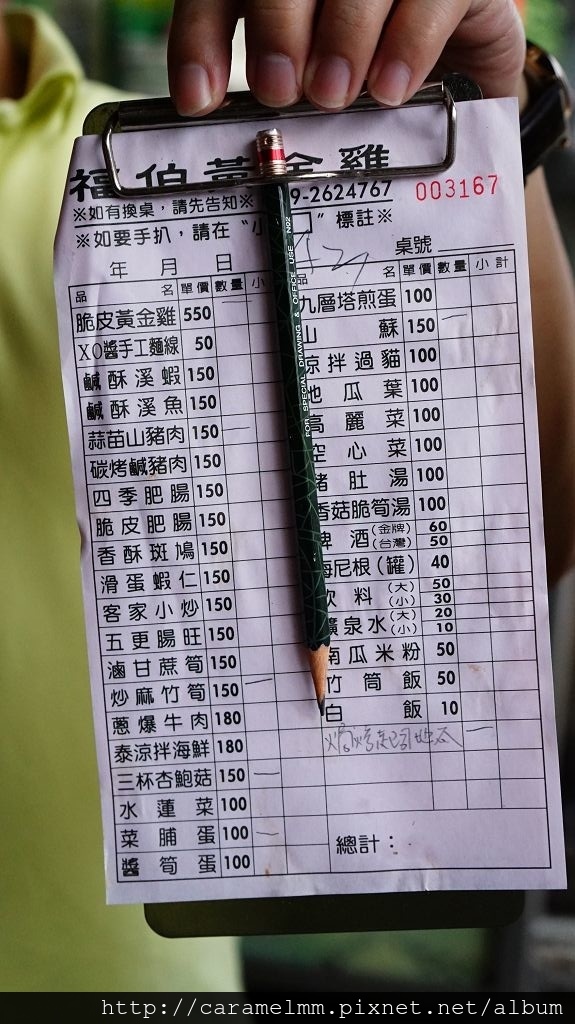 福伯黃金雞
9-2624767 003167
※如有換桌，請先告知※
※如要手扒，請在“小 ”標註※
年 月 日 桌號
品 名 單價 數量 小
脆皮黃金雞 550
XO醬手工麵線 50
鹹酥溪蝦 150
鹹酥溪魚 150
蒜苗山豬肉 150 一
碳烤鹹豬肉 150
四季肥腸 150
脆皮肥腸 150
香酥斑鳩 150
滑蛋蝦仁 150
客家小炒 150
五更腸旺 150
滷甘蔗筍 150
炒麻竹筍 150 一
蔥爆牛肉 180
泰涼拌海鮮 180
三杯杏鮑菇 150 一
水蓮菜 100
菜脯蛋 100 一
醬筍蛋 100
品 名 單價 數量 小計
九層塔煎蛋 100
山蘇 150 一
涼拌過貓 100
地瓜葉 100
高麗菜 100
空心菜 100
豬肚湯 100
香菇脆筍湯 100
啤酒(金牌) 60
(台灣) 50
海尼根(罐) 40
飲料(大) 50
(小) 30
礦泉水(大) 20
(小) 10
南瓜米粉 50
竹筒飯 50
白飯 10
總計：
http://caramelmm.pixnet.net/album